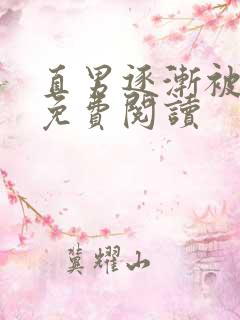 直男逐漸被
免費閱讀
冀耀山